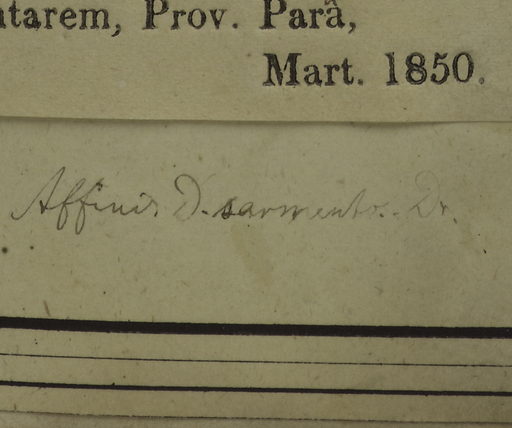 ntarem, Prov. Parà,
Mart. 1850.
Affinis D. sarmentos. Dr.